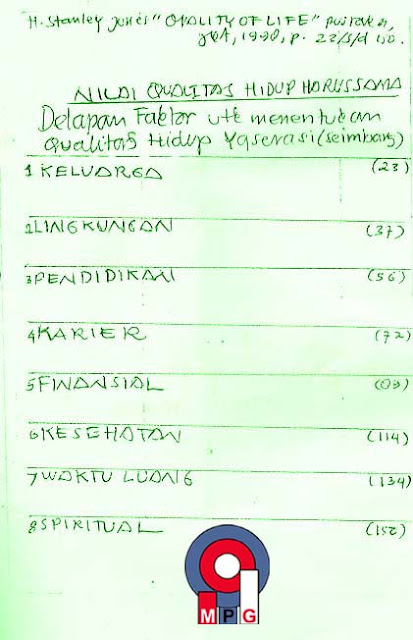 H. Stanley Jones "QUALITY OF LIFE"
1990, p. 22/s/d 150.
NILAI QUALITAS HIDUP HARUS SAMA
Delapan Faktor utk menentukan
Qualitas Hidup Yg serasi (seimbang)
1 KELUARGA (23)
2 LINGKUNGAN (37)
3 PENDIDIKAN (56)
4 KARIER (72)
5 FINANSIAL (93)
6 KESEHATAN (114)
7 WAKTU LUANG (134)
8 SPIRITUAL (152)
MPG